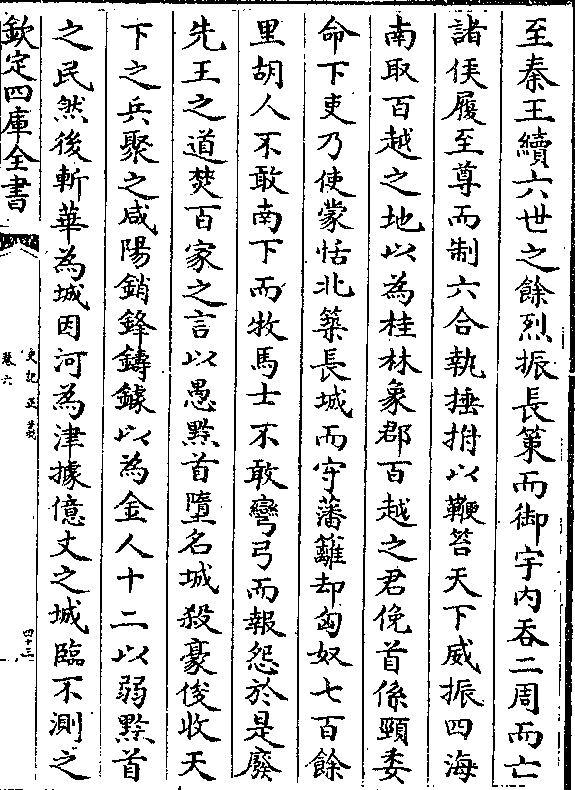 至秦王續六世之餘烈振長策而御宇内吞二周而亡
諸侯履至尊而制六合執捶拊以鞭笞天下威振四海
南取百越之地以為桂林象郡百越之君俛首係頸委
命下吏乃使蒙恬北築長城而守藩籬却匈奴七百餘
里胡人不敢南下而牧馬士不敢彎弓而報怨於是廢
先王之道焚百家之言以愚黔首墮名城殺豪俊收天
下之兵聚之咸陽銷鋒鑄鐻以為金人十二以弱黔首
之民然後斬華為城因河為津據億丈之城臨不測之
欽定四庫全書
史記正義
卷六
四十三